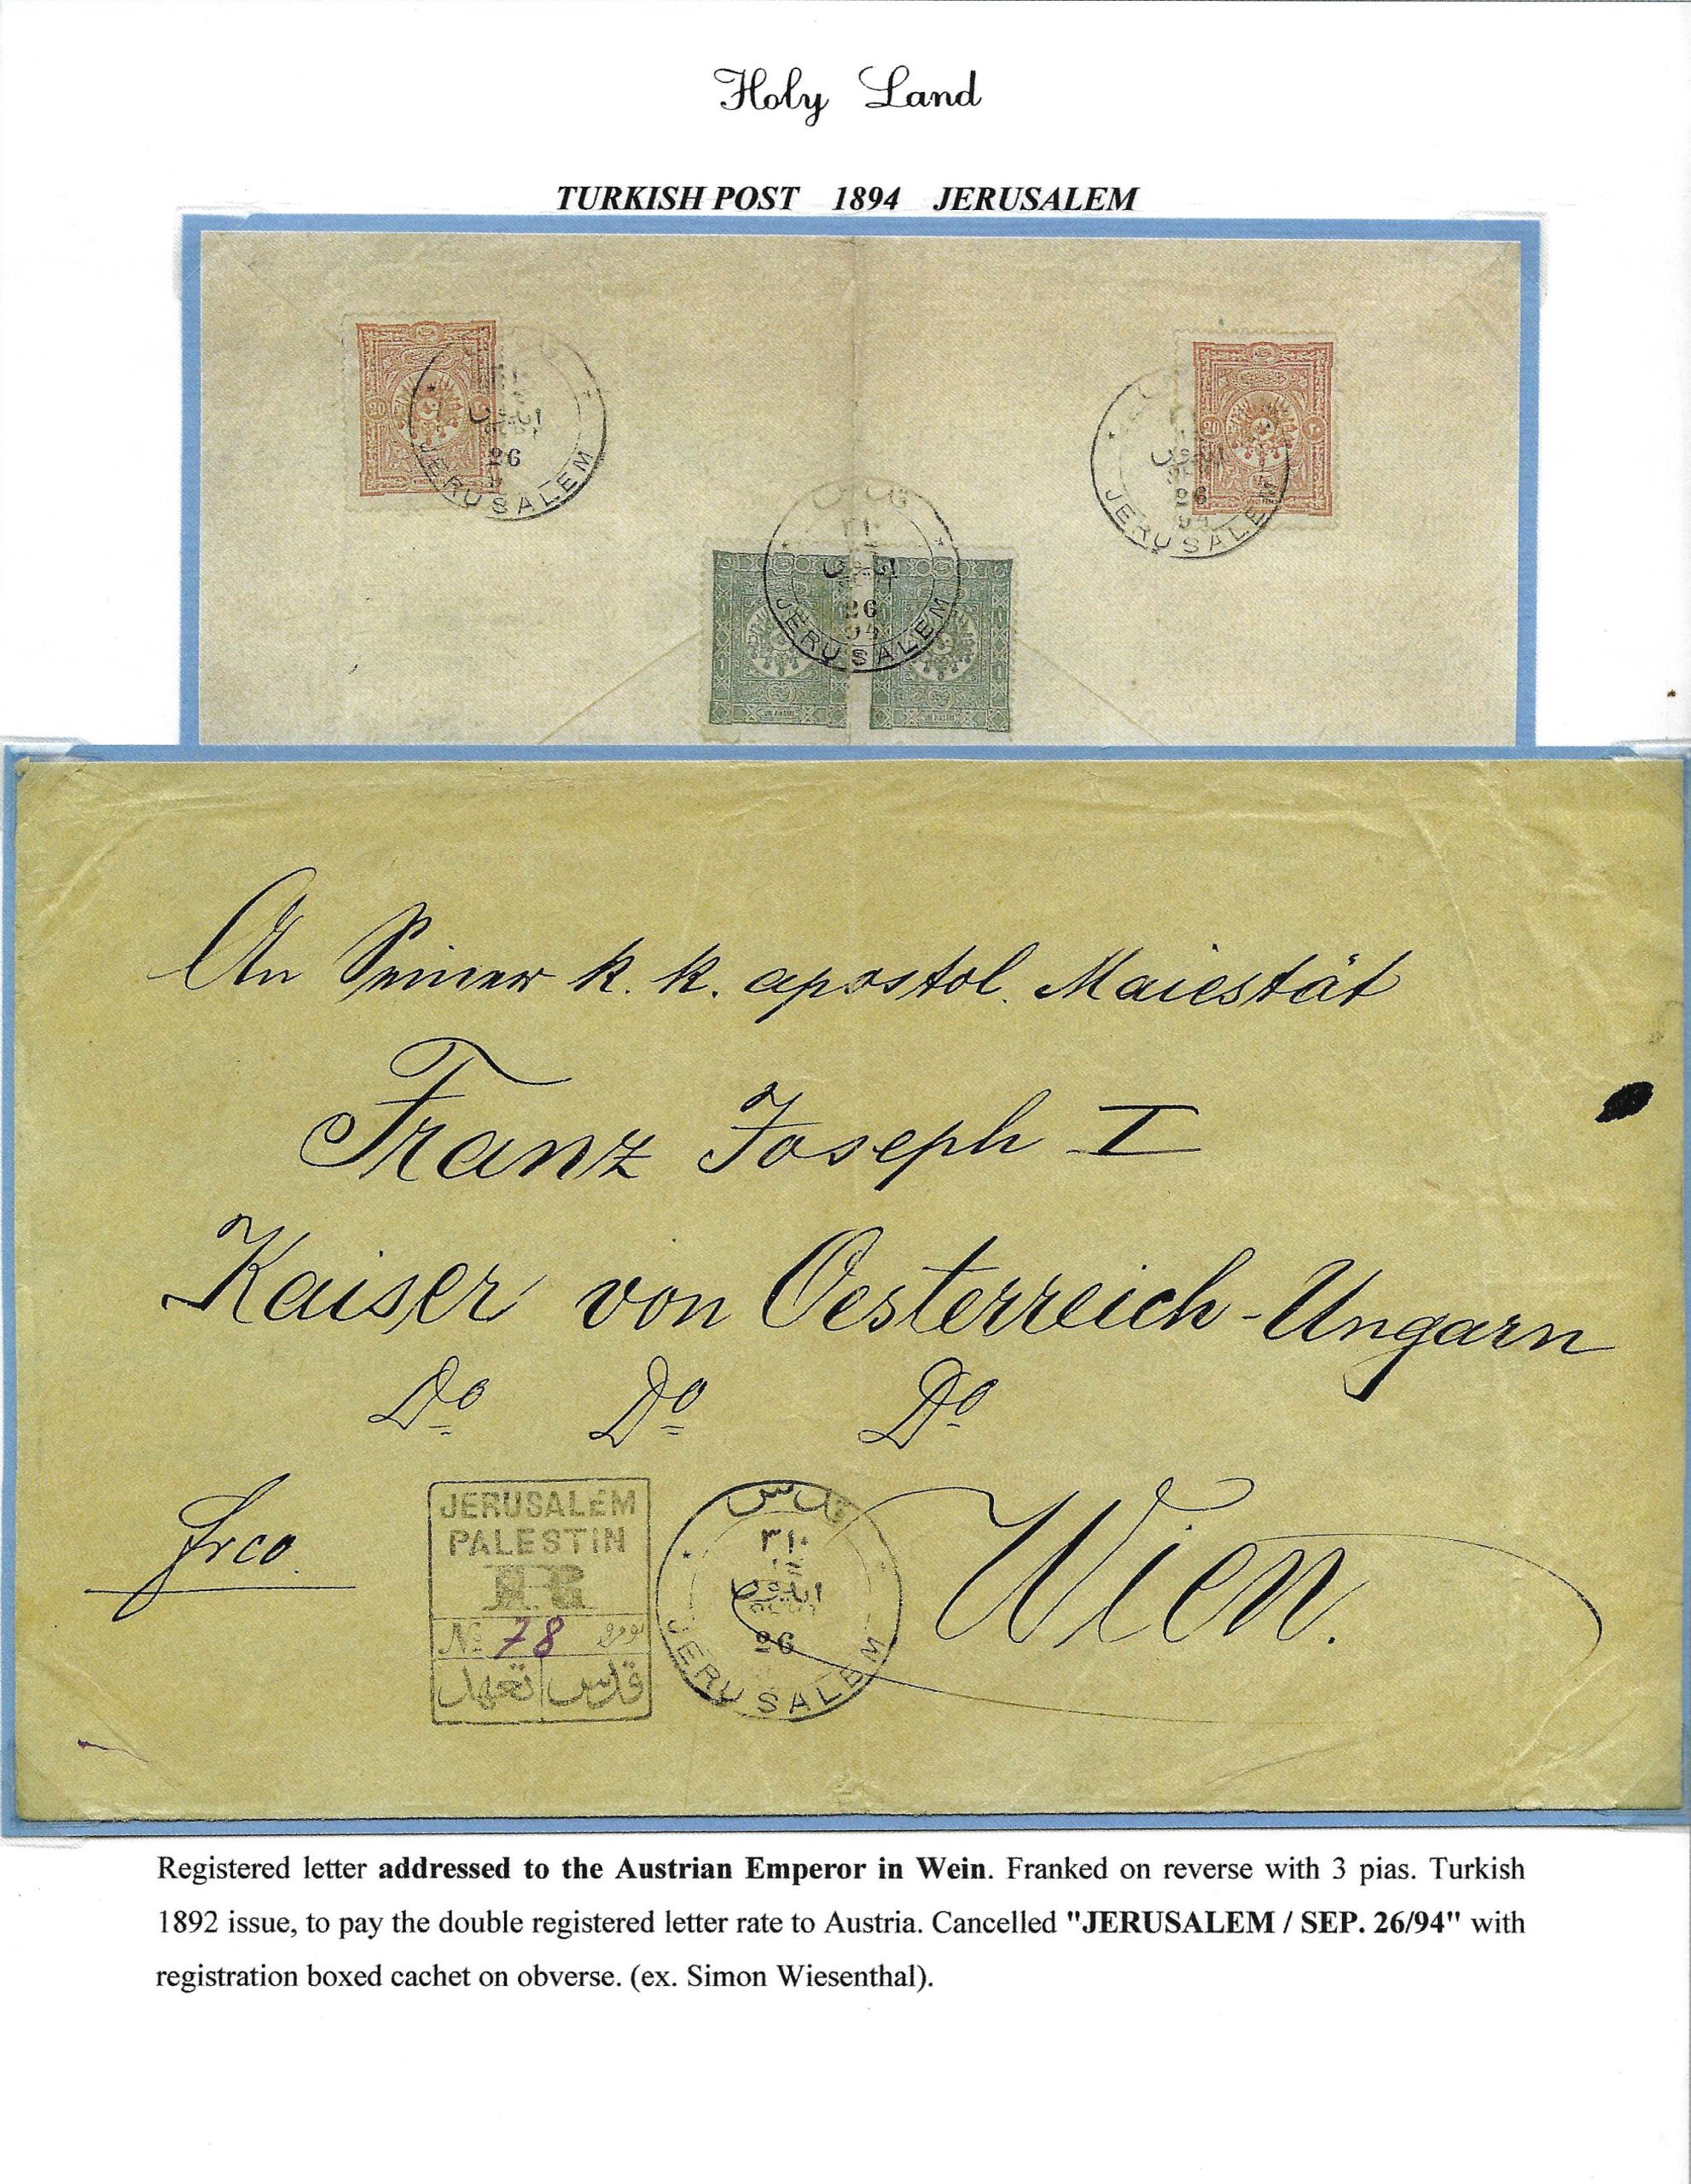 Holy Land
TURKISH POST 1894 JERUSALEM
20
26
JERUSALEM
20
26
94
JERUSALEM
قدس
٣١٠
ايلول
26
94
JERUSALEM
An Seiner k. k. apostol. Maiestät
Franz Joseph I
Kaiser von Oesterreich-Ungarn
Do Do Do
Frco.
Wien.
JERUSALEM
PALESTIN
R
No 78 نومرو
تعهد قدس
قدس
٣١٠
١٤
ايلول
26
JERUSALEM
Registered letter addressed to the Austrian Emperor in Wein. Franked on reverse with 3 pias. Turkish
1892 issue, to pay the double registered letter rate to Austria. Cancelled "JERUSALEM / SEP. 26/94" with
registration boxed cachet on obverse. (ex. Simon Wiesenthal).